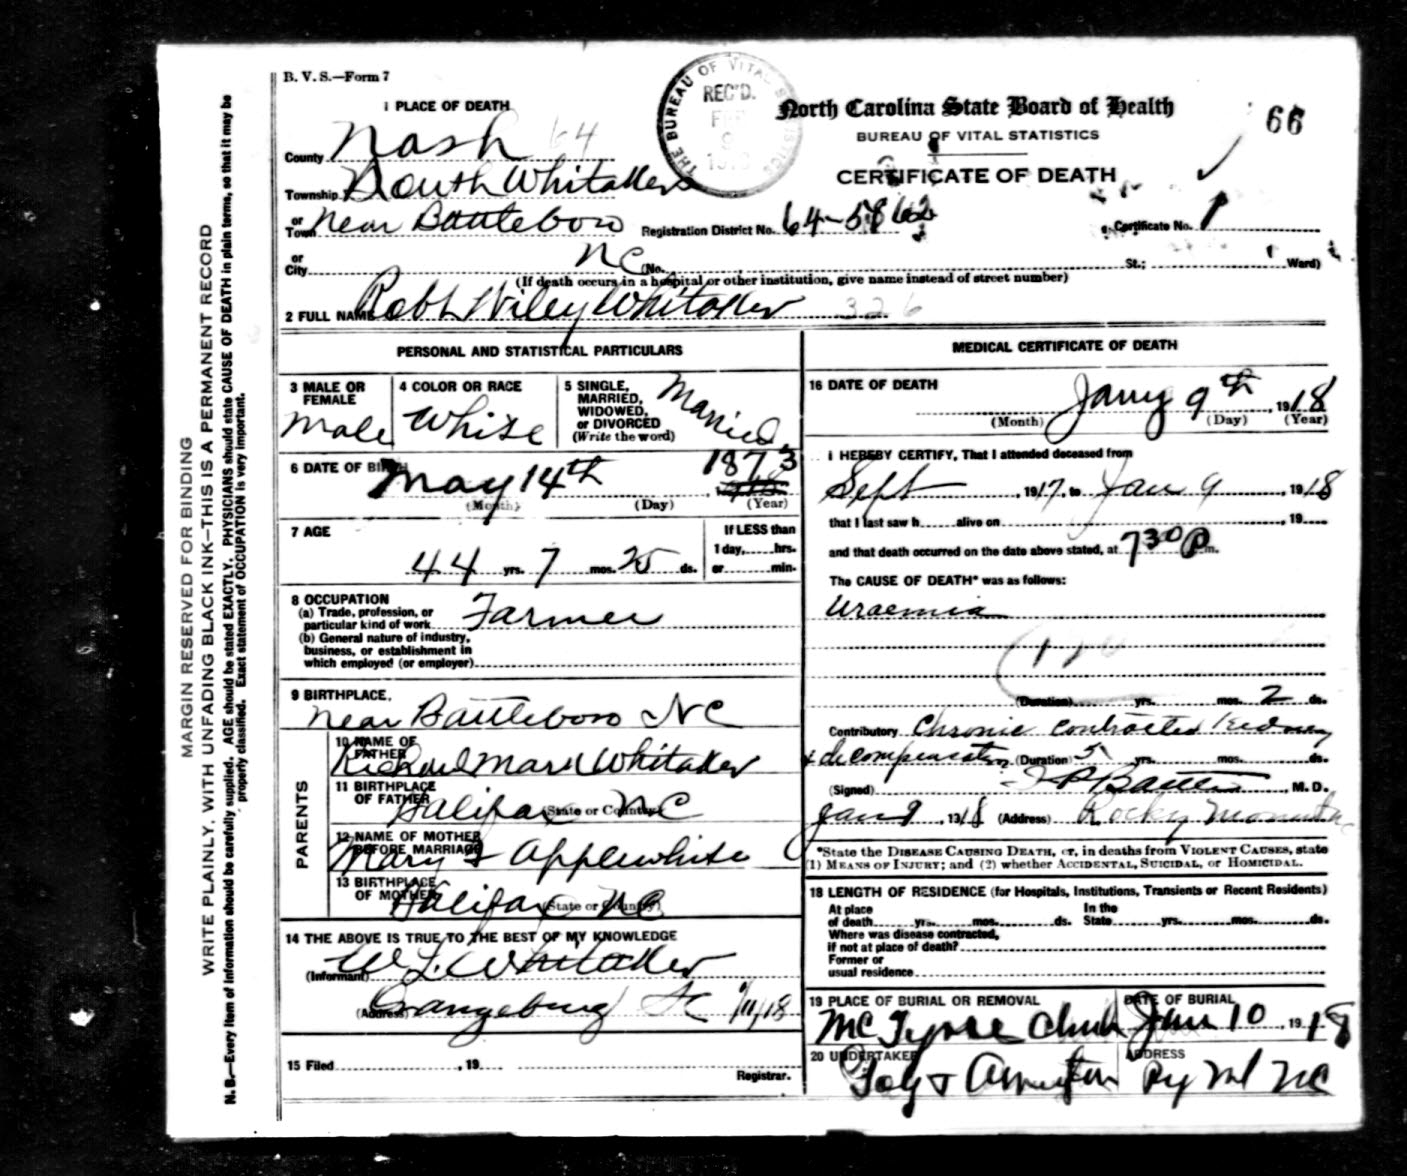 B. V. S.—Form 7
1 PLACE OF DEATH
THE BUREAU OF VITAL STATISTICS
REC'D.
North Carolina State Board of Health
66
BUREAU OF VITAL STATISTICS
CERTIFICATE OF DEATH
County Nash 64
Township South Whitakers
or Town near Battleboro
Registration District No. 64-5862
Certificate No. 1
or City NC (No. St.; Ward)
(If death occurs in a hospital or other institution, give name instead of street number)
2 FULL NAME Robt Wiley Whitaker 326
PERSONAL AND STATISTICAL PARTICULARS
3 MALE OR FEMALE
Male
4 COLOR OR RACE
White
5 SINGLE, MARRIED, WIDOWED, or DIVORCED (Write the word)
Married
6 DATE OF BIRTH May 14th 1873
(Month) (Day) (Year)
7 AGE
44 yrs. 7 mos. 25 ds.
If LESS than 1 day, hrs. or min.
8 OCCUPATION
(a) Trade, profession, or particular kind of work Farmer
(b) General nature of industry, business, or establishment in which employed (or employer)
9 BIRTHPLACE.
near Battleboro NC
PARENTS
10 NAME OF FATHER
Richard Mark Whitaker
11 BIRTHPLACE OF FATHER
Halifax NC
(State or Country)
12 NAME OF MOTHER BEFORE MARRIAGE
Mary Applewhite
13 BIRTHPLACE OF MOTHER
Halifax NC
(State or Country)
14 THE ABOVE IS TRUE TO THE BEST OF MY KNOWLEDGE
(Informant) W L Whitaker
(Address) Orangeburg SC 1/11/18
15 Filed , 19
Registrar.
MEDICAL CERTIFICATE OF DEATH
16 DATE OF DEATH
Jany 9th, 1918
(Month) (Day) (Year)
I HEREBY CERTIFY, That I attended deceased from
Sept , 1917, to Jan 9 , 1918
that I last saw h alive on , 19
and that death occurred on the date above stated, at 730 P m.
The CAUSE OF DEATH* was as follows:
Uraemia
(Duration) yrs. mos. 2 ds.
Contributory Chronic contracted kidney
& decompensation (Duration) 5 yrs. mos. ds.
(Signed) M. D.
Jan 9, 1918 (Address) Rocky Mount NC
*State the DISEASE CAUSING DEATH, or, in deaths from VIOLENT CAUSES, state
(1) MEANS OF INJURY; and (2) whether ACCIDENTAL, SUICIDAL, or HOMICIDAL.
18 LENGTH OF RESIDENCE (for Hospitals, Institutions, Transients or Recent Residents)
At place of death yrs. mos. ds. In the State yrs. mos. ds.
Where was disease contracted, if not at place of death?
Former or usual residence
19 PLACE OF BURIAL OR REMOVAL
McTyeire Chuch
DATE OF BURIAL
Jan 10, 1918
20 UNDERTAKER
ADDRESS
Ry Mt NC
MARGIN RESERVED FOR BINDING
WRITE PLAINLY, WITH UNFADING BLACK INK—THIS IS A PERMANENT RECORD
N. B.—Every item of information should be carefully supplied. AGE should be stated EXACTLY. PHYSICIANS should state CAUSE OF DEATH in plain terms, so that it may be
properly classified. Exact statement of OCCUPATION is very important.